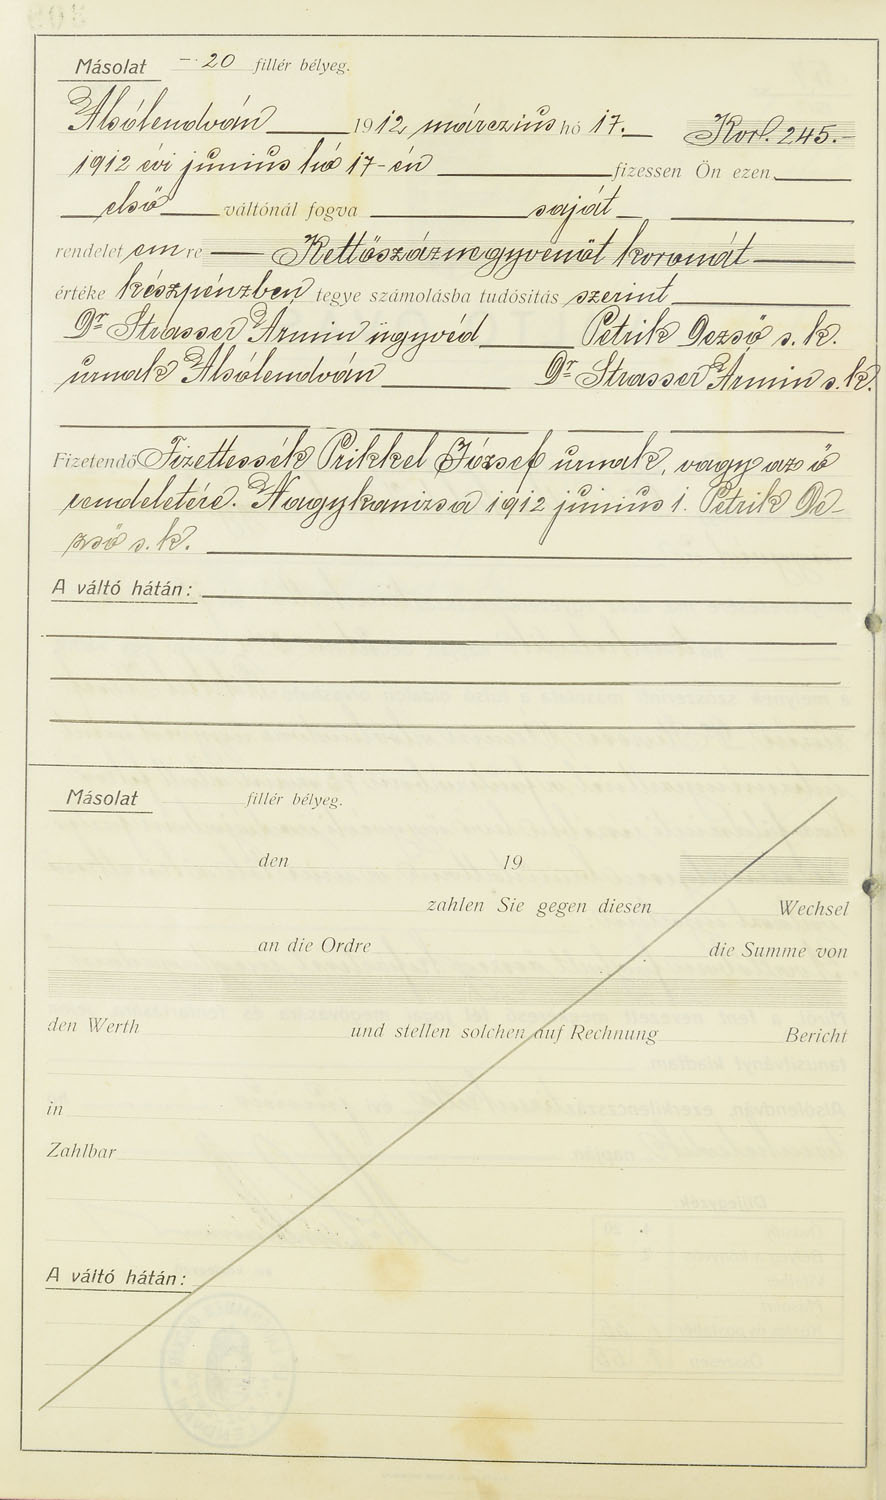 Másolat - 20 fillér bélyeg.
Alsólendván 1912 márczius hó 17. Kor. 245.-
1912 évi junius hó 17-én fizessen Ön ezen
első váltónál fogva saját
rendelet em re Kettőszáznegyvenöt koronát
értéke készpénzben tegye számolásba tudósítás szerint
Dr Strasser Ármin ügyvéd Petrik Dezső s. k.
urnak Alsólendván Dr Strasser Ármin s. k.
Fizetendő Fizettessék Prikkel József urnak, vagy az ő
rendeletére. Nagykanizsa 1912 junius 1. Petrik De-
zső s. k.
A váltó hátán:
Másolat fillér bélyeg.
den 19
zahlen Sie gegen diesen Wechsel
an die Ordre die Summe von
den Werth und stellen solchen auf Rechnung Bericht
in
Zahlbar
A váltó hátán: